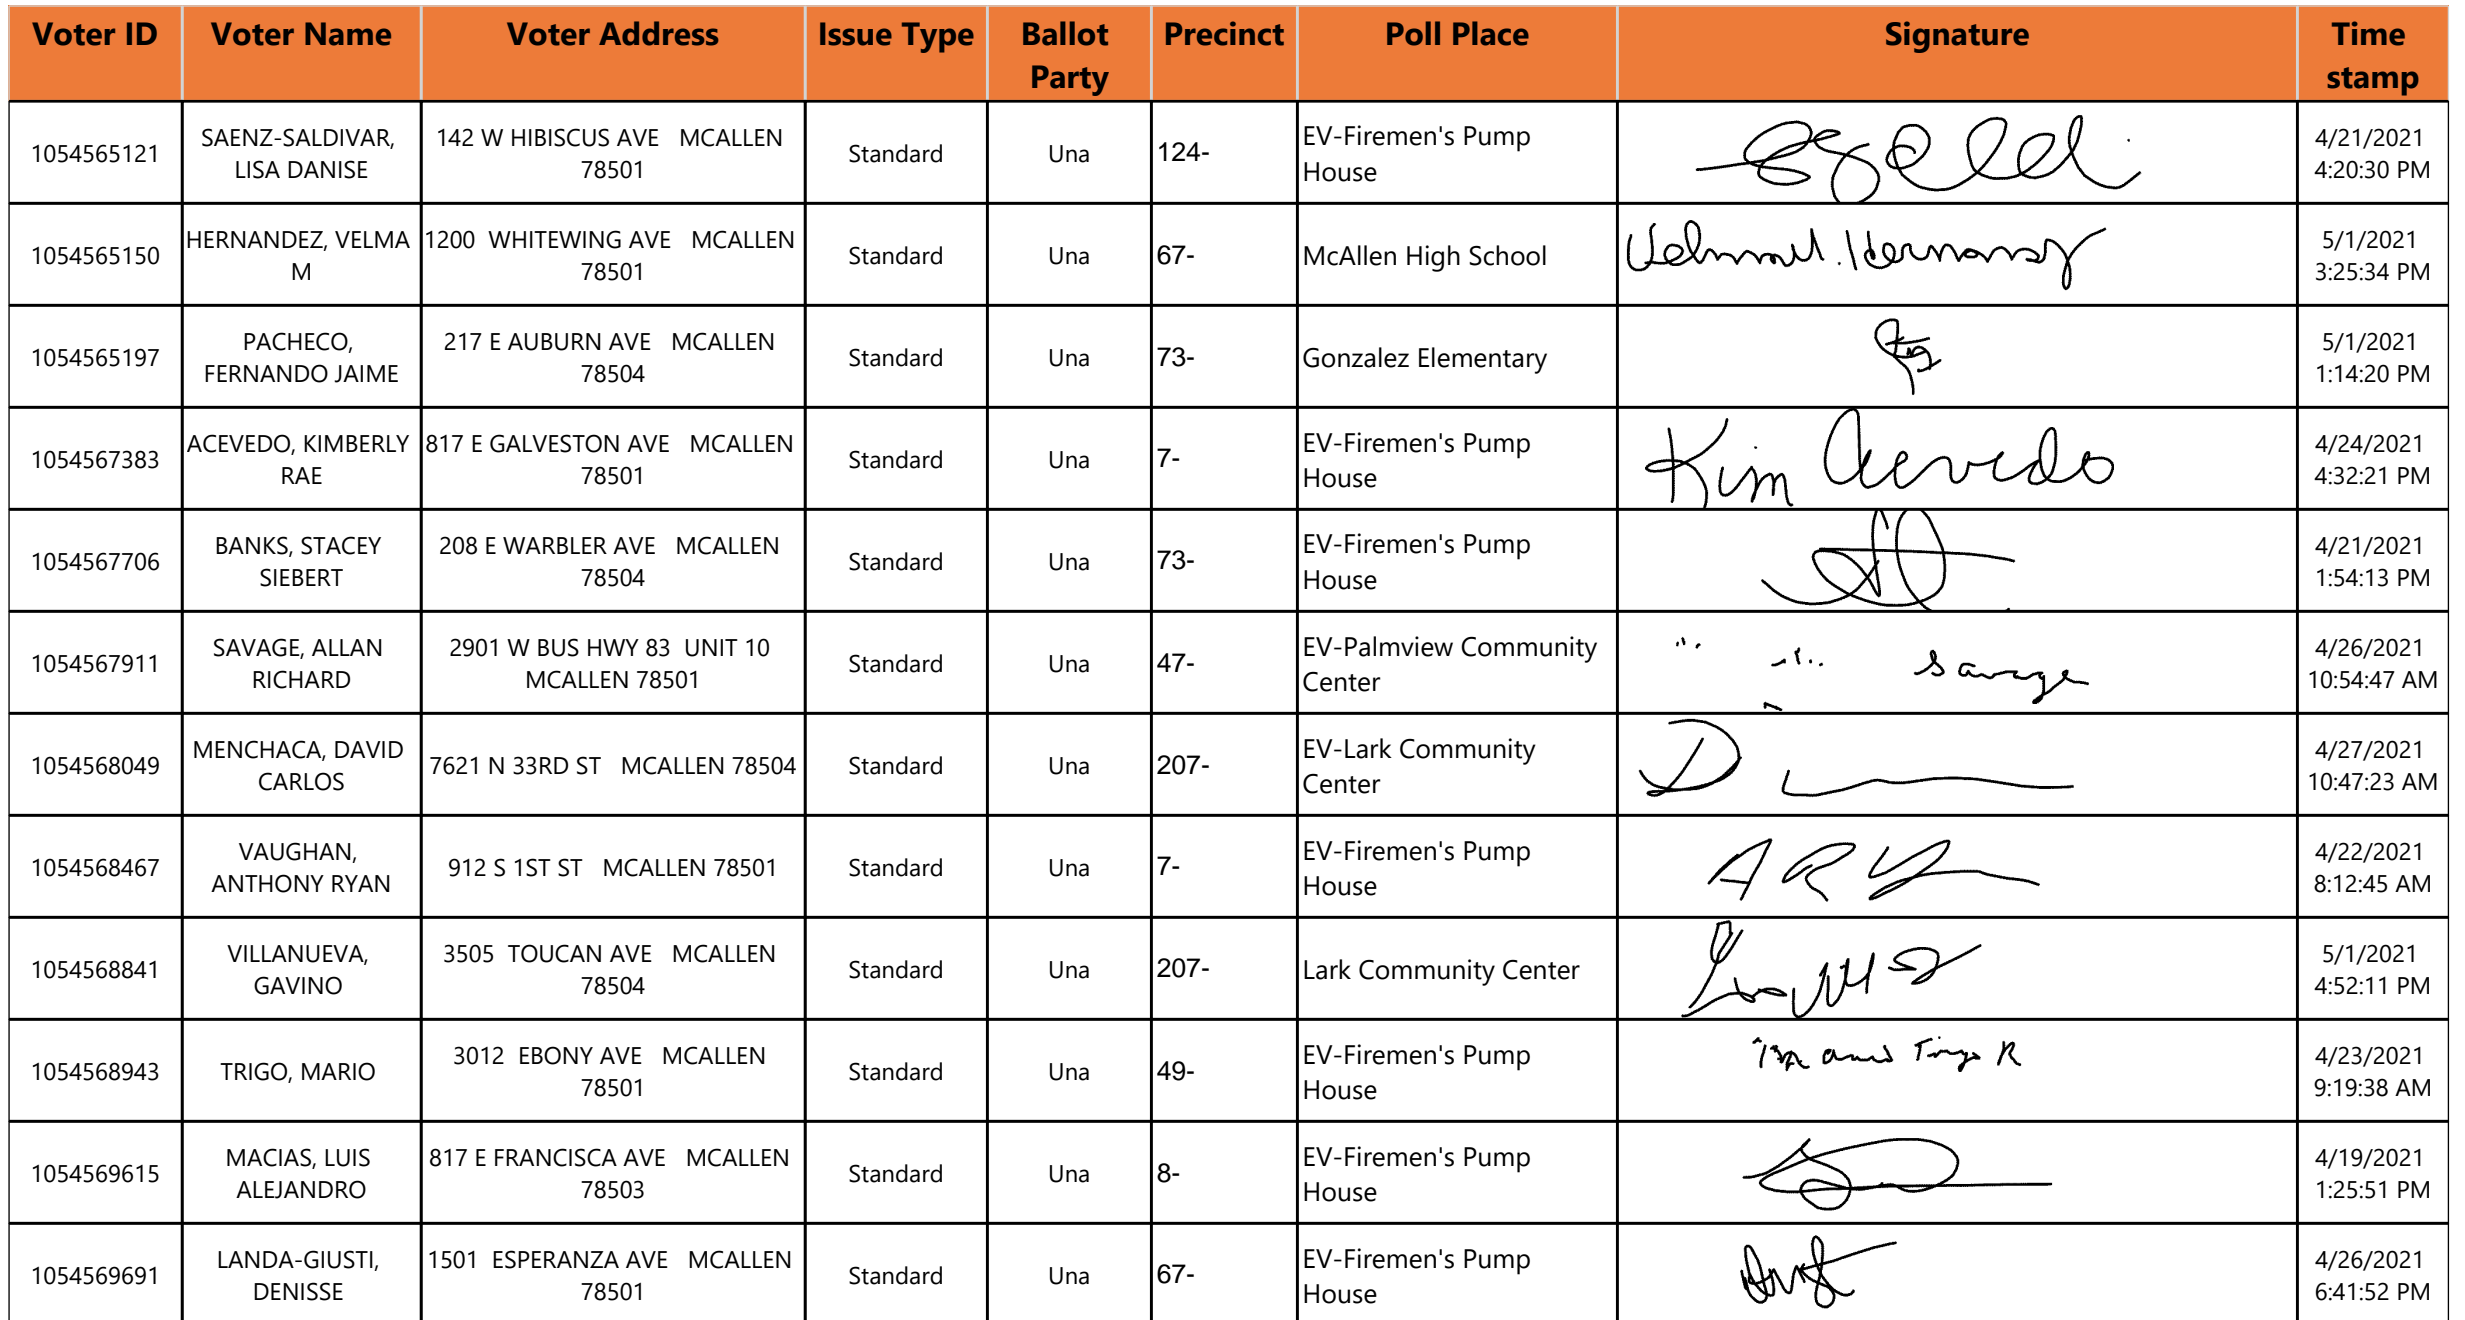 Voter ID Voter Name Voter Address Issue Type Ballot Party Precinct Poll Place Signature Time stamp
1054565121 SAENZ-SALDIVAR, LISA DANISE 142 W HIBISCUS AVE MCALLEN 78501 Standard Una 124- EV-Firemen's Pump House 4/21/2021 4:20:30 PM
1054565150 HERNANDEZ, VELMA M 1200 WHITEWING AVE MCALLEN 78501 Standard Una 67- McAllen High School Velma M. Hernandez 5/1/2021 3:25:34 PM
1054565197 PACHECO, FERNANDO JAIME 217 E AUBURN AVE MCALLEN 78504 Standard Una 73- Gonzalez Elementary 5/1/2021 1:14:20 PM
1054567383 ACEVEDO, KIMBERLY RAE 817 E GALVESTON AVE MCALLEN 78501 Standard Una 7- EV-Firemen's Pump House Kim Acevedo 4/24/2021 4:32:21 PM
1054567706 BANKS, STACEY SIEBERT 208 E WARBLER AVE MCALLEN 78504 Standard Una 73- EV-Firemen's Pump House 4/21/2021 1:54:13 PM
1054567911 SAVAGE, ALLAN RICHARD 2901 W BUS HWY 83 UNIT 10 MCALLEN 78501 Standard Una 47- EV-Palmview Community Center Savage 4/26/2021 10:54:47 AM
1054568049 MENCHACA, DAVID CARLOS 7621 N 33RD ST MCALLEN 78504 Standard Una 207- EV-Lark Community Center D 4/27/2021 10:47:23 AM
1054568467 VAUGHAN, ANTHONY RYAN 912 S 1ST ST MCALLEN 78501 Standard Una 7- EV-Firemen's Pump House A R V 4/22/2021 8:12:45 AM
1054568841 VILLANUEVA, GAVINO 3505 TOUCAN AVE MCALLEN 78504 Standard Una 207- Lark Community Center 5/1/2021 4:52:11 PM
1054568943 TRIGO, MARIO 3012 EBONY AVE MCALLEN 78501 Standard Una 49- EV-Firemen's Pump House Mario Trigo R 4/23/2021 9:19:38 AM
1054569615 MACIAS, LUIS ALEJANDRO 817 E FRANCISCA AVE MCALLEN 78503 Standard Una 8- EV-Firemen's Pump House 4/19/2021 1:25:51 PM
1054569691 LANDA-GIUSTI, DENISSE 1501 ESPERANZA AVE MCALLEN 78501 Standard Una 67- EV-Firemen's Pump House 4/26/2021 6:41:52 PM